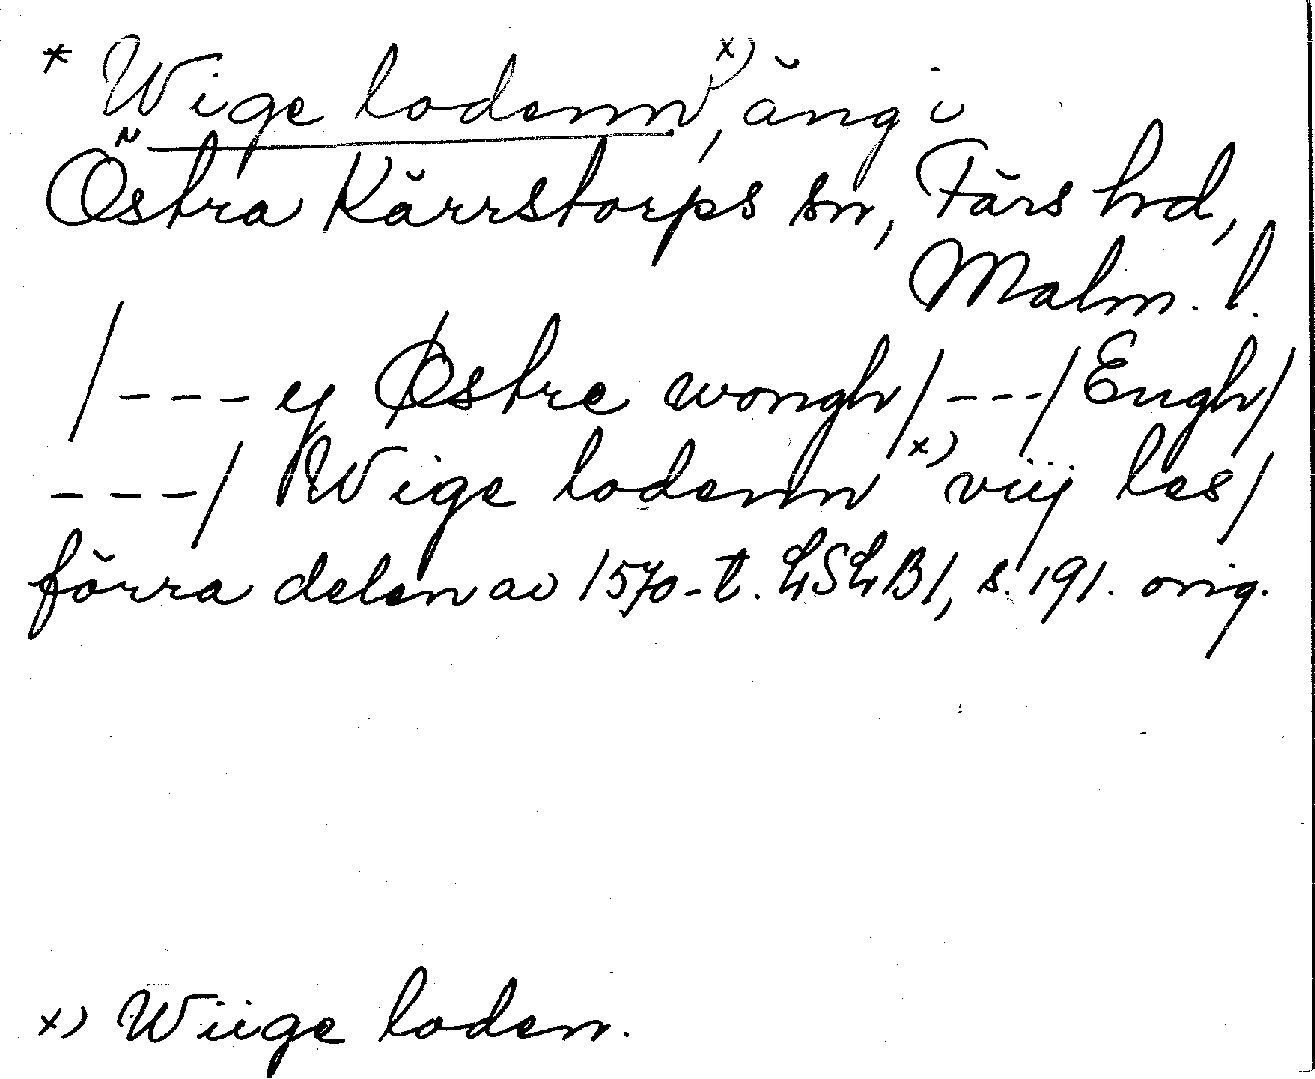 * Wige lodenn x), äng i
Östra Kärrstorps sn, Färs hd,
Malm. l.
/--- ey Østre wongh/---/Engh/
---/ Wige lodenn x) viij les/
förra delen av 1570-t. LSLB1, s. 191. orig.
x) Wiige loden.